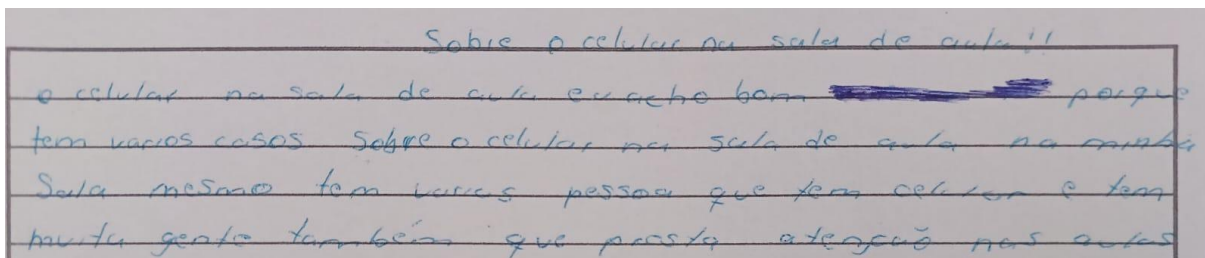 Sobre o celular na sala de aula!!
o celular na sala de aula eu acho bom porque
tem varios casos Sobre o celular na sala de aula na minha
Sala mesmo tem varias pessoa que tem celular e tem
muita gente também que presta atenção nas aulas